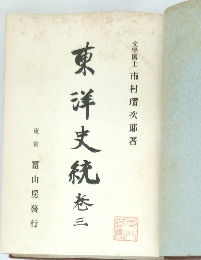 文學博士 市村瓚次郎著
東洋史統 卷三
東京 冨山房發行